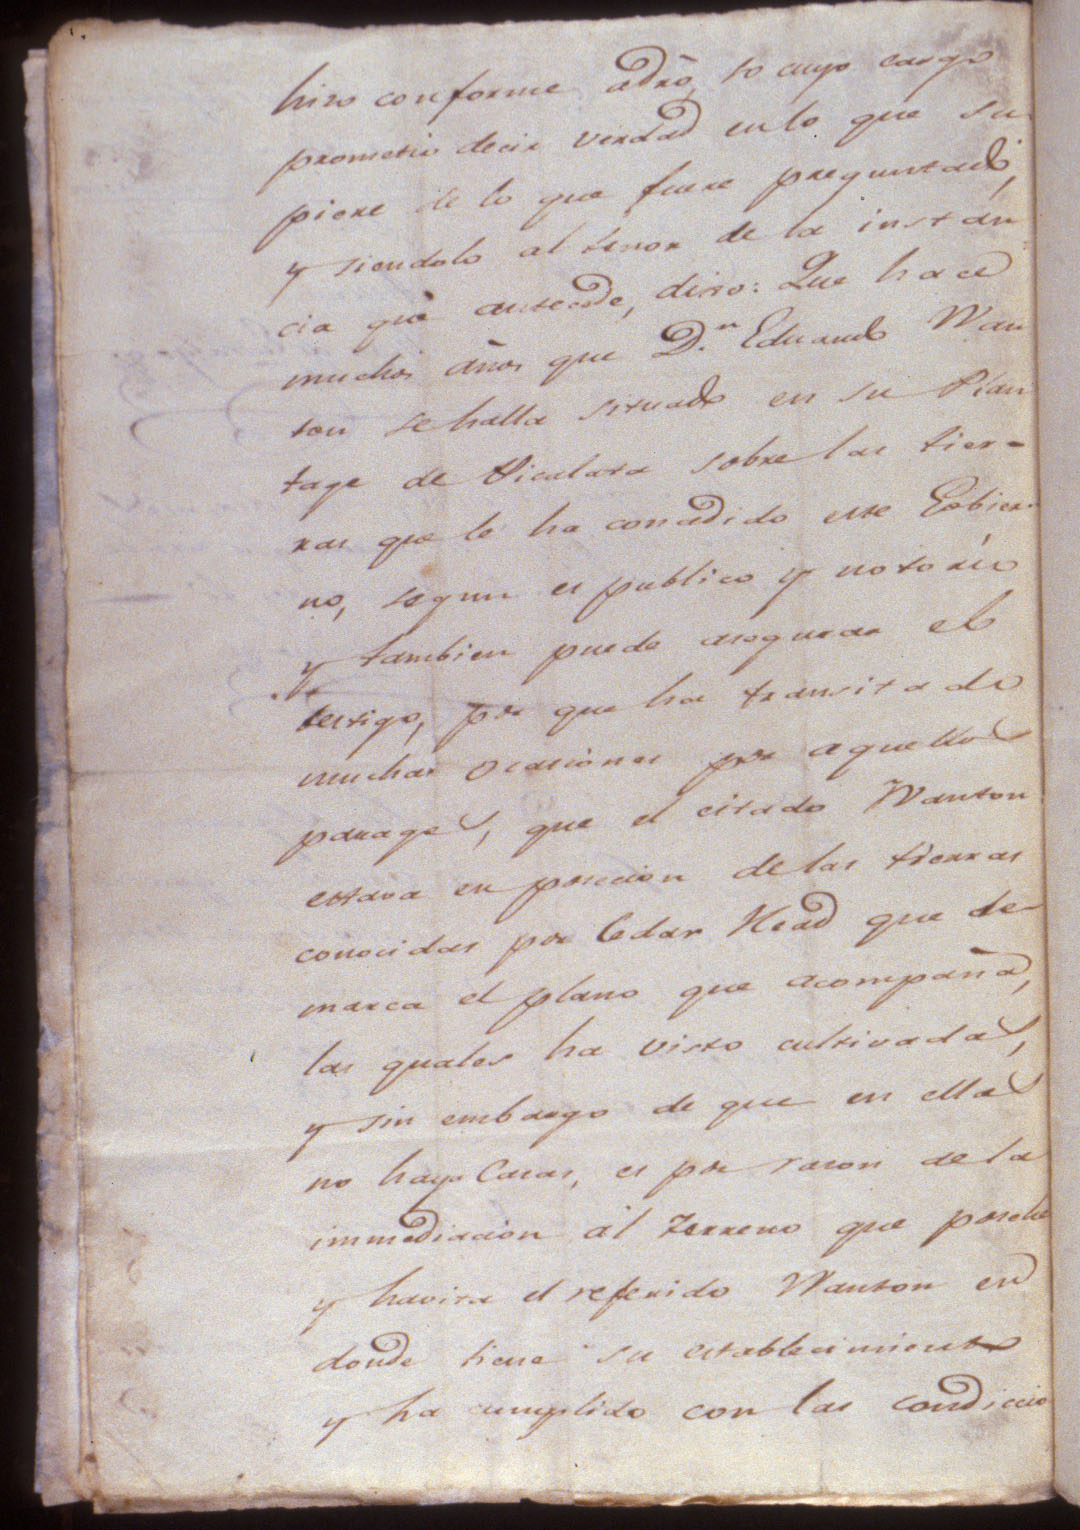 hizo conforme adrõ, so cuyo cargo
prometio decir verdad en lo que su
piere de lo que fuere preguntado,
y siendolo al tenor de la instan
cia que antecede, dixo: Que hace
muchos años que D.n Eduardo Wan
ton se halla situado en su Plan
tage de sobre las tier-
ras que le ha concedido este Gobier-
no, segun es publico y notorio
y tambien puede asegurar el
testigo, por que ha transitado
muchas ocasiones por aquellos
parages, que el citado Wanton
estava en posecion de las tierras
conocidas por Cedar Head que de-
marca el plano que acompaña,
las quales ha visto cultivadas,
y sin embargo de que en ellas
no haya Casas, es por razon de la
immediacion al terreno que posehe
y havita el referido Wanton en
donde tiene su establecimiento
y ha cumplido con las condiccio